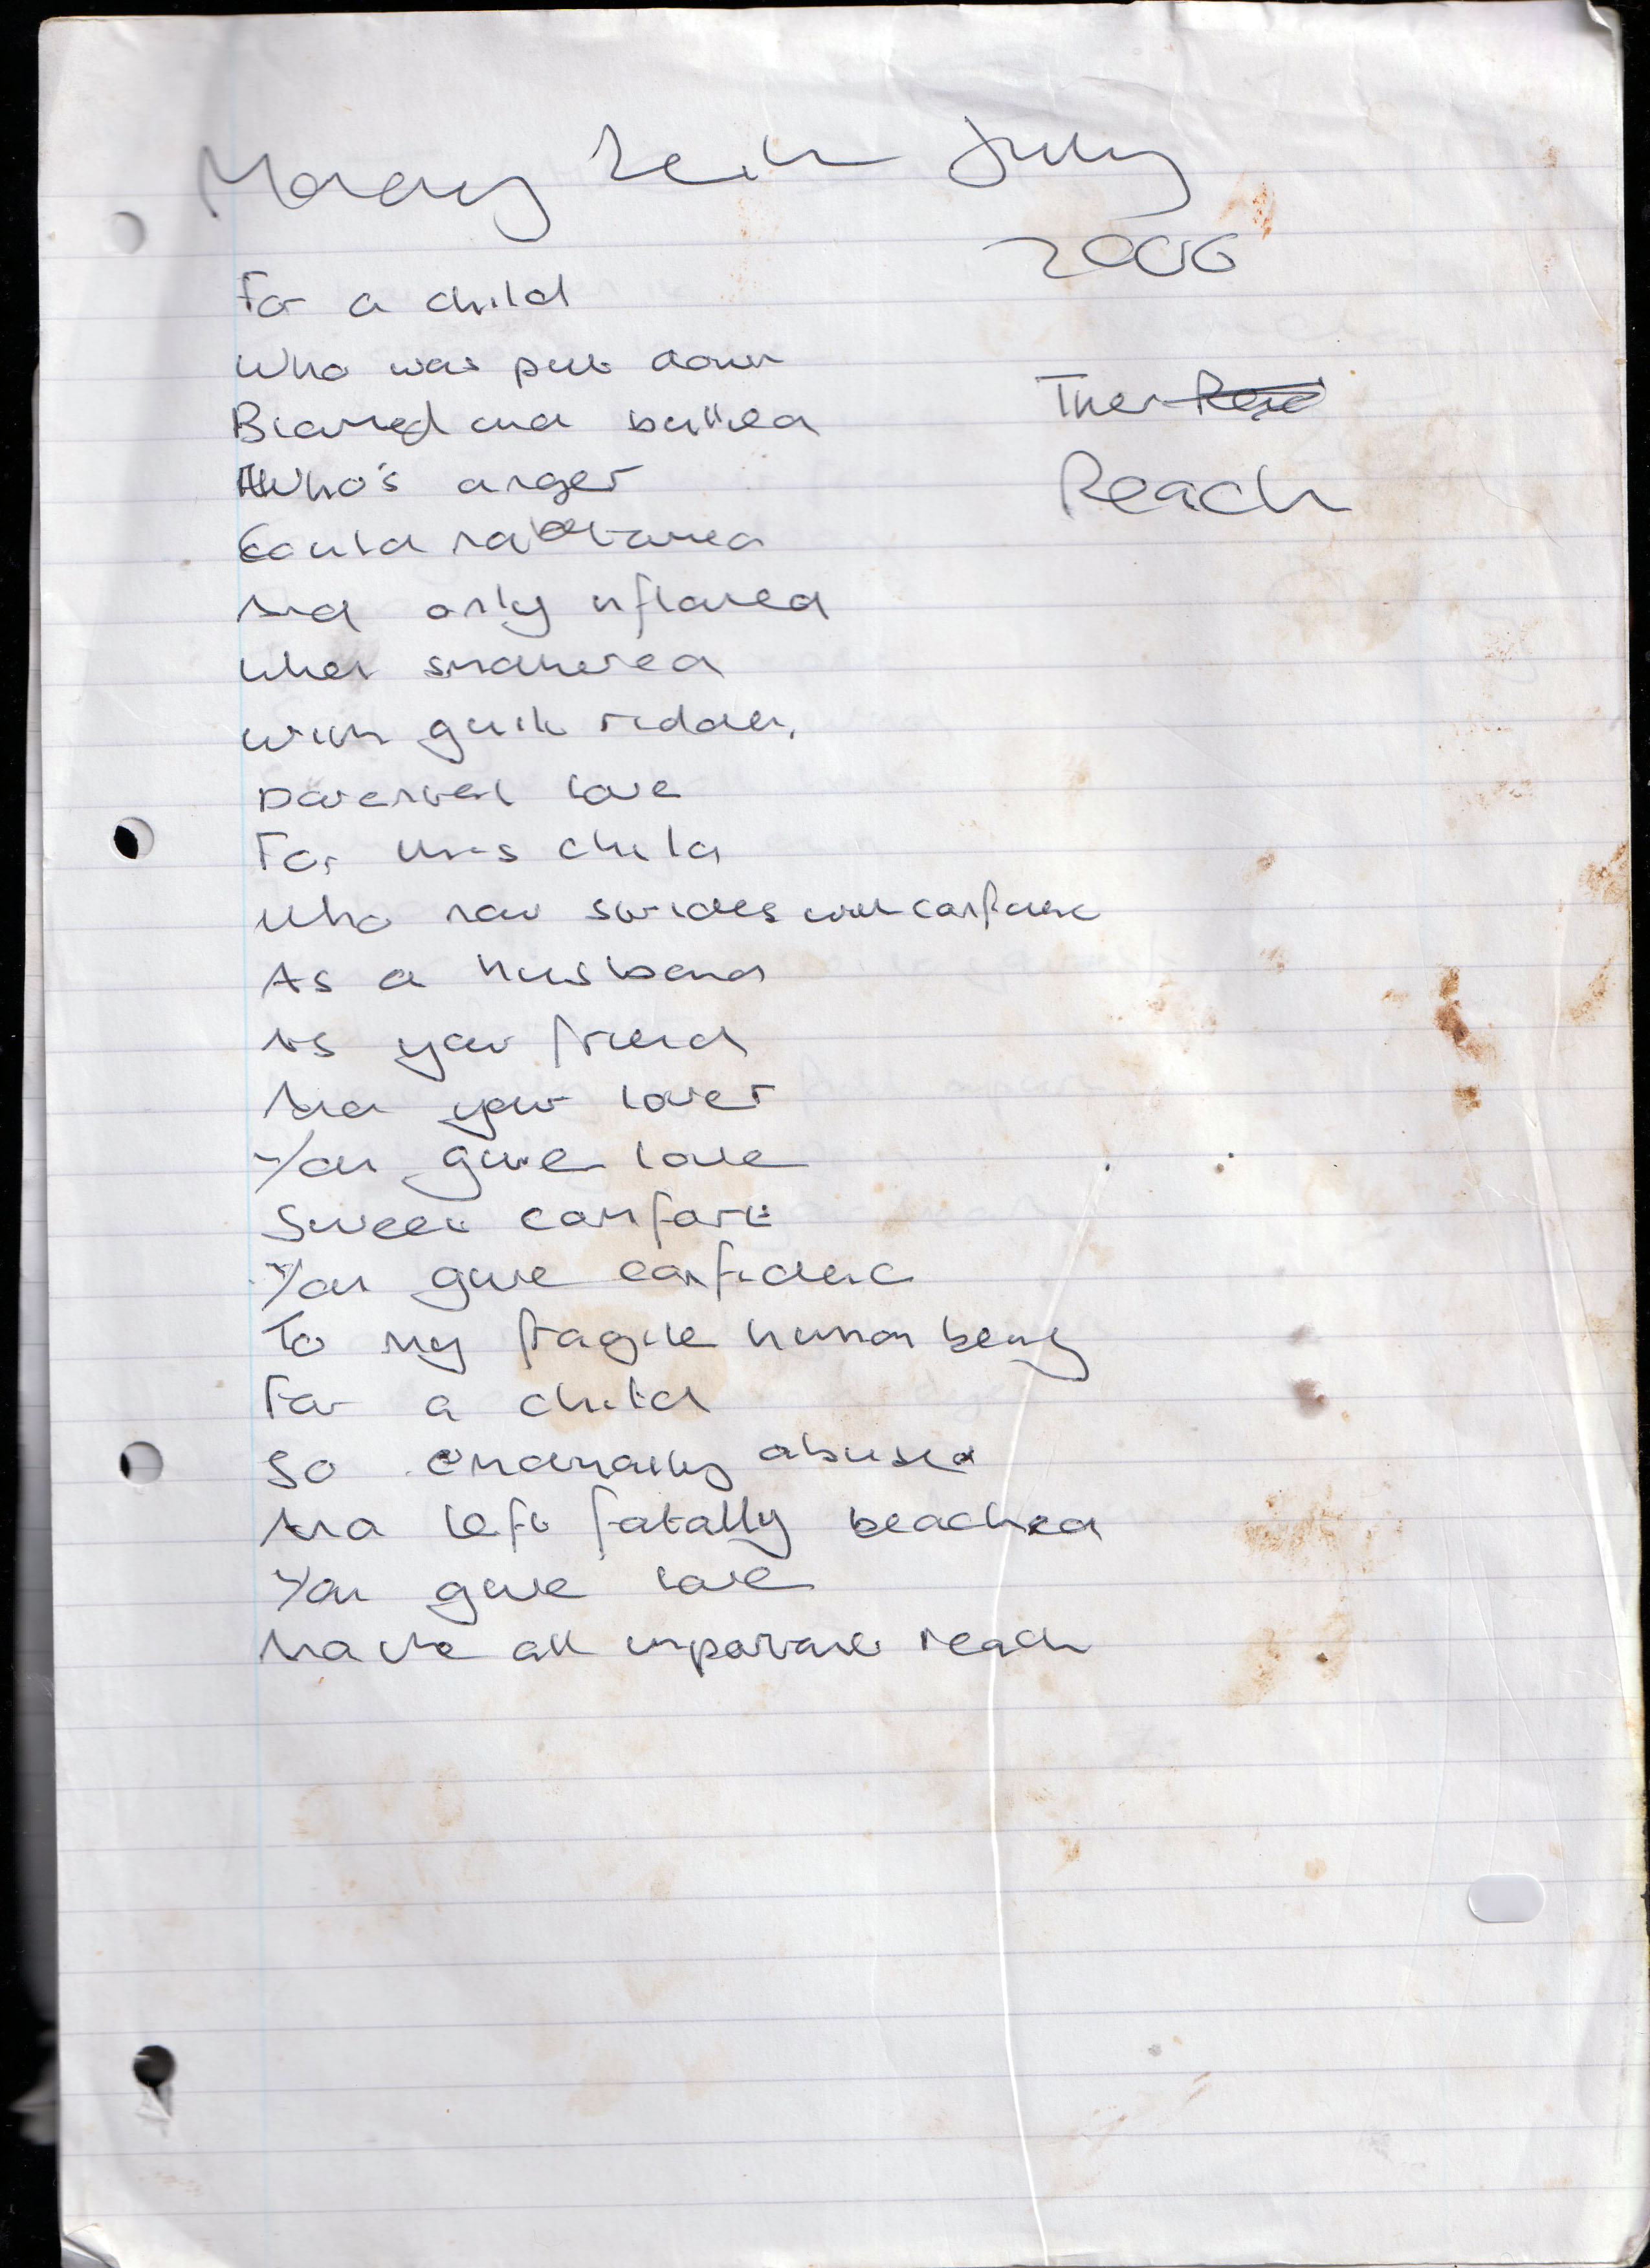 Monday July
2006
Their Reac
Reach
For a child
Who was put down
Blamed and bullied
Who's anger
Could not be tamed
And only inflamed
When smothered
With guilt ridden,
love
For this child
Who now strides with confidence
As a husband
As your friend
And your lover
You give love
Sweet comfort
You give confidence
To my fragile human being
For a child
So emotionally abused
And left fatally beached
You give love
And the all important reach